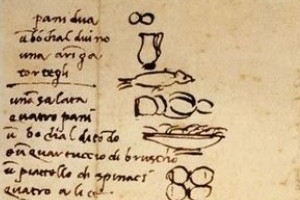 pani dua
u bochal di uino
una aringa
tortegli
una salata
quatro pani
u bochal di todo
e un quartuccio di bruscho
u piatello di spinaci
quatro alice